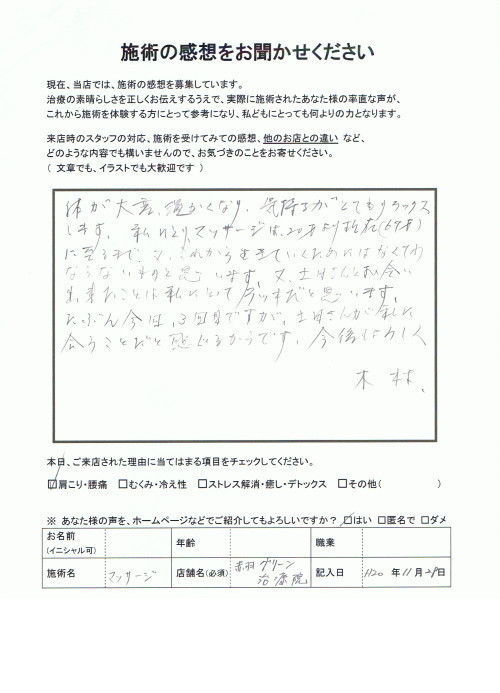 施術の感想をお聞かせください
現在、当店では、施術の感想を募集しています。
治療の素晴らしさを正しくお伝えするうえで、実際に施術されたあなた様の率直な声が、
これから施術を体験する方にとって参考になり、私どもにとっても何よりの力となります。
来店時のスタッフの対応、施術を受けてみての感想、他のお店との違い など、
どのような内容でも構いませんので、お気づきのことをお寄せください。
( 文章でも、イラストでも大歓迎です )
体が大変、温かくなり、気持ちがとてもリラックス
します。私にとりマッサージは、20才より現在(67才)
に至るまで、又、これから生きていくためにはなくては
ならないものと思います。又、土田さんとお会い
出来たことは私にとって ラッキだと思います。
たぶん今回、3回目ですが、土田さんが私に
合うことだと感じるからです。今後よろしく
木村、
本日、ご来店された理由に当てはまる項目をチェックしてください。
☑肩こり・腰痛 □むくみ・冷え性 □ストレス解消・癒し・デトックス □その他( )
※ あなた様の声を、ホームページなどでご紹介してもよろしいですか? ☑はい □匿名で □ダメ
お名前 (イニシャル可) 年齢 職業
施術名 マッサージ 店舗名(必須) 赤羽グリーン治療院 記入日 H20 年 11 月 29日